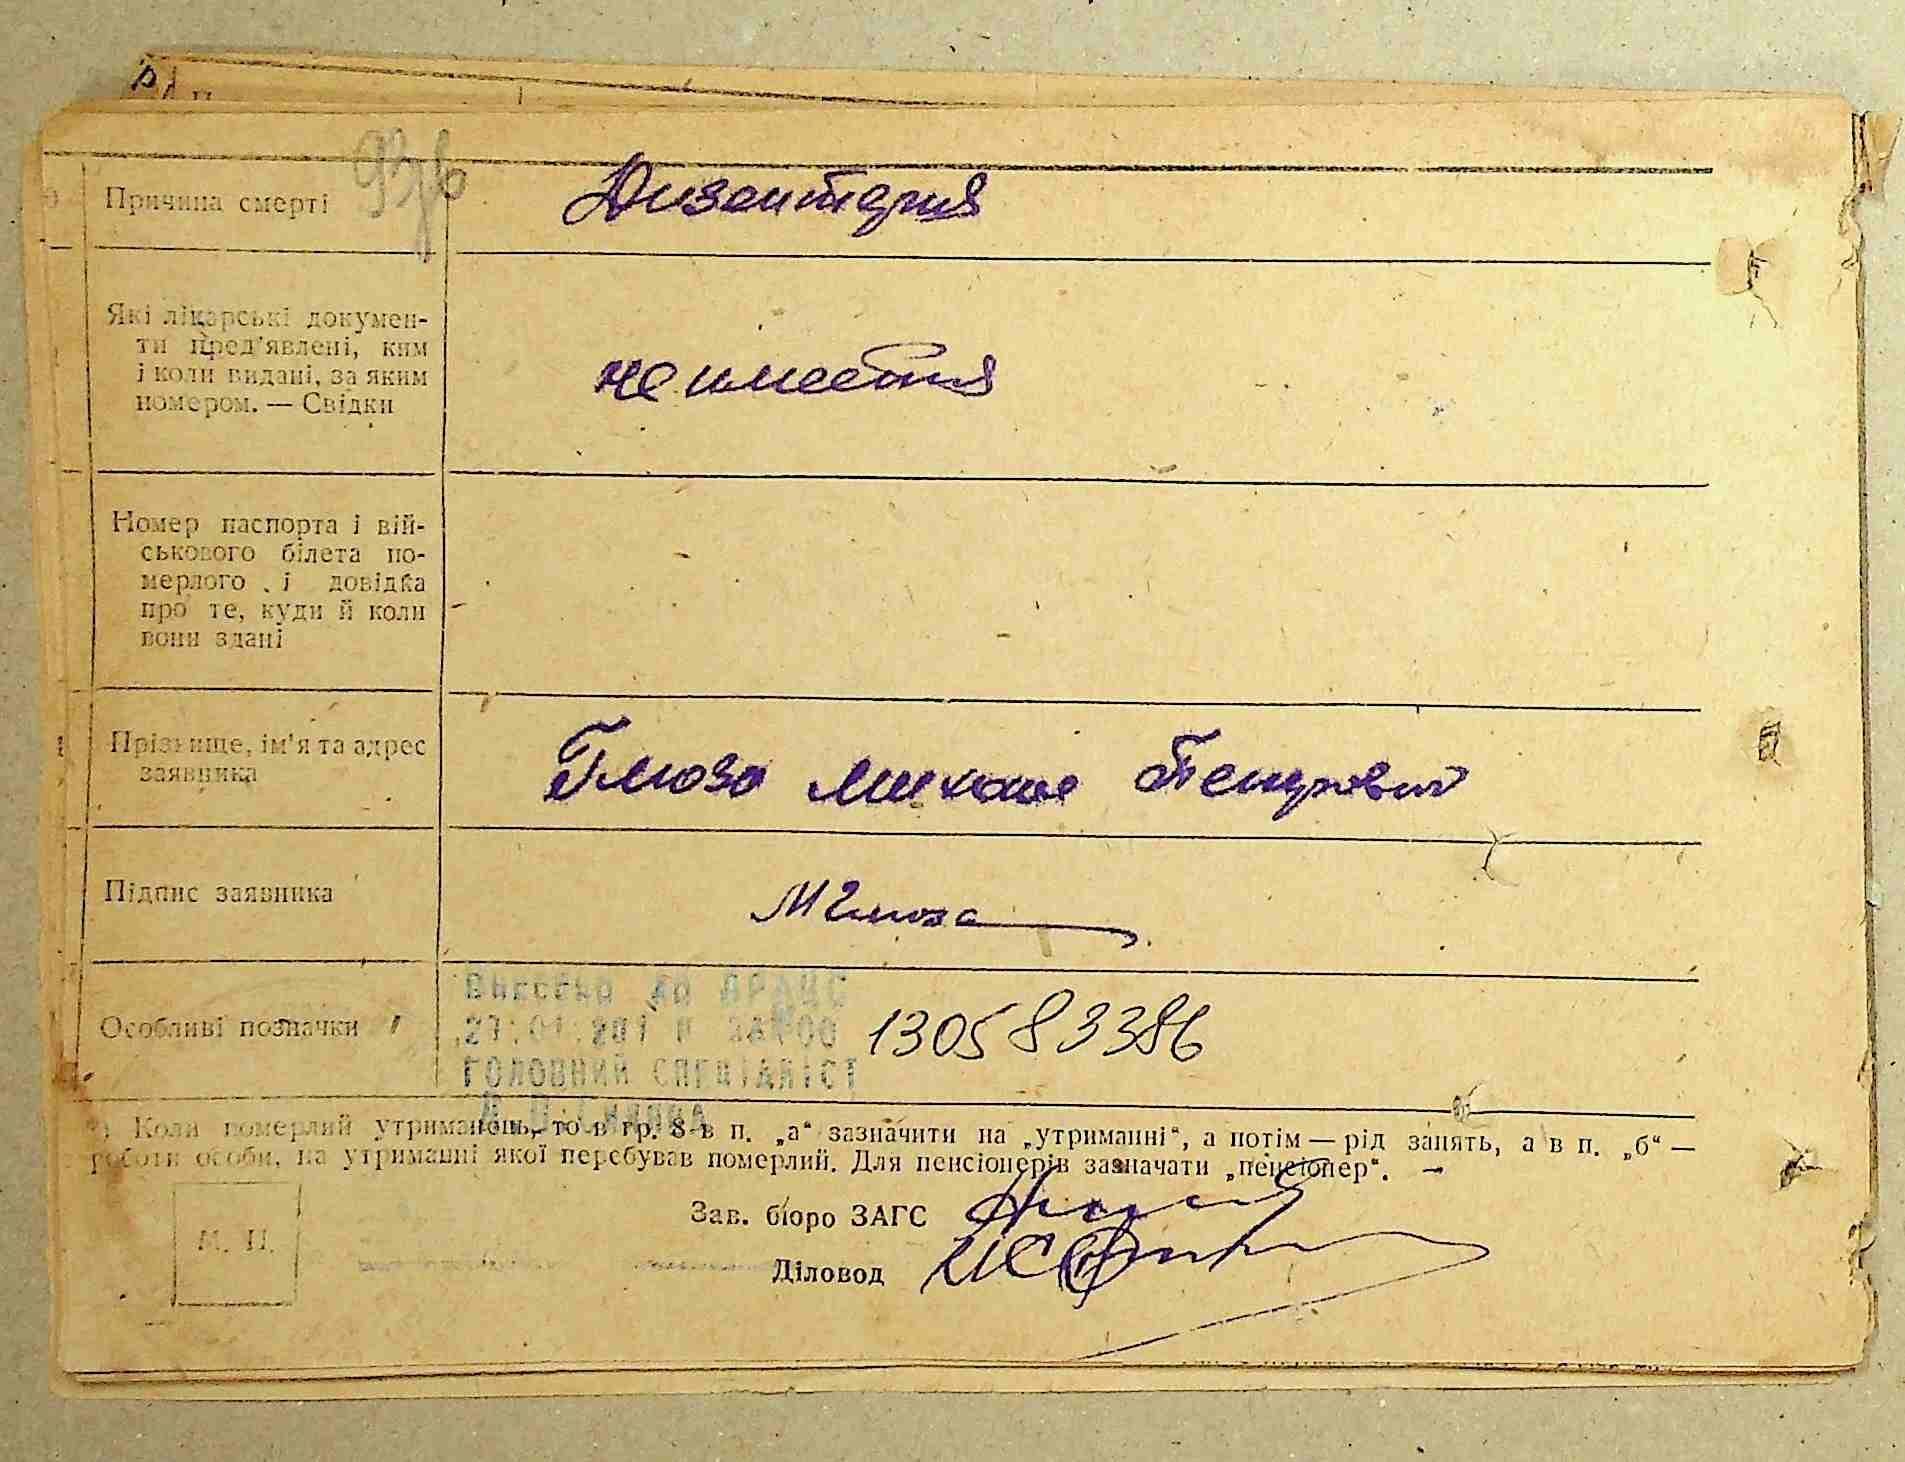 Причина смерті
Дизентерия
Які лікарські докумен-
ти пред'явлені, ким
і коли видані, за яким
номером. — Свідки
не имеется
Номер паспорта і вій-
ськового білета по-
мерлого і довідка
про те, куди й коли
вони здані
Прізвище, ім'я та адрес
заявника
Глюза Михаил Петрович
Підпис заявника
МГлюза
Особливі позначки
Внесено до ДРАЦС
ГОЛОВНИЙ СПЕЦІАЛІСТ
130583386
*) Коли померлий утриманець, то в гр. 8 в п. „а“ зазначити на „утриманні“, а потім — рід занять, а в п. „б“ —
роботи особи, на утриманні якої перебував померлий. Для пенсіонерів зазначати „пенсіонер“.
Зав. бюро ЗАГС
М. П.
Діловод